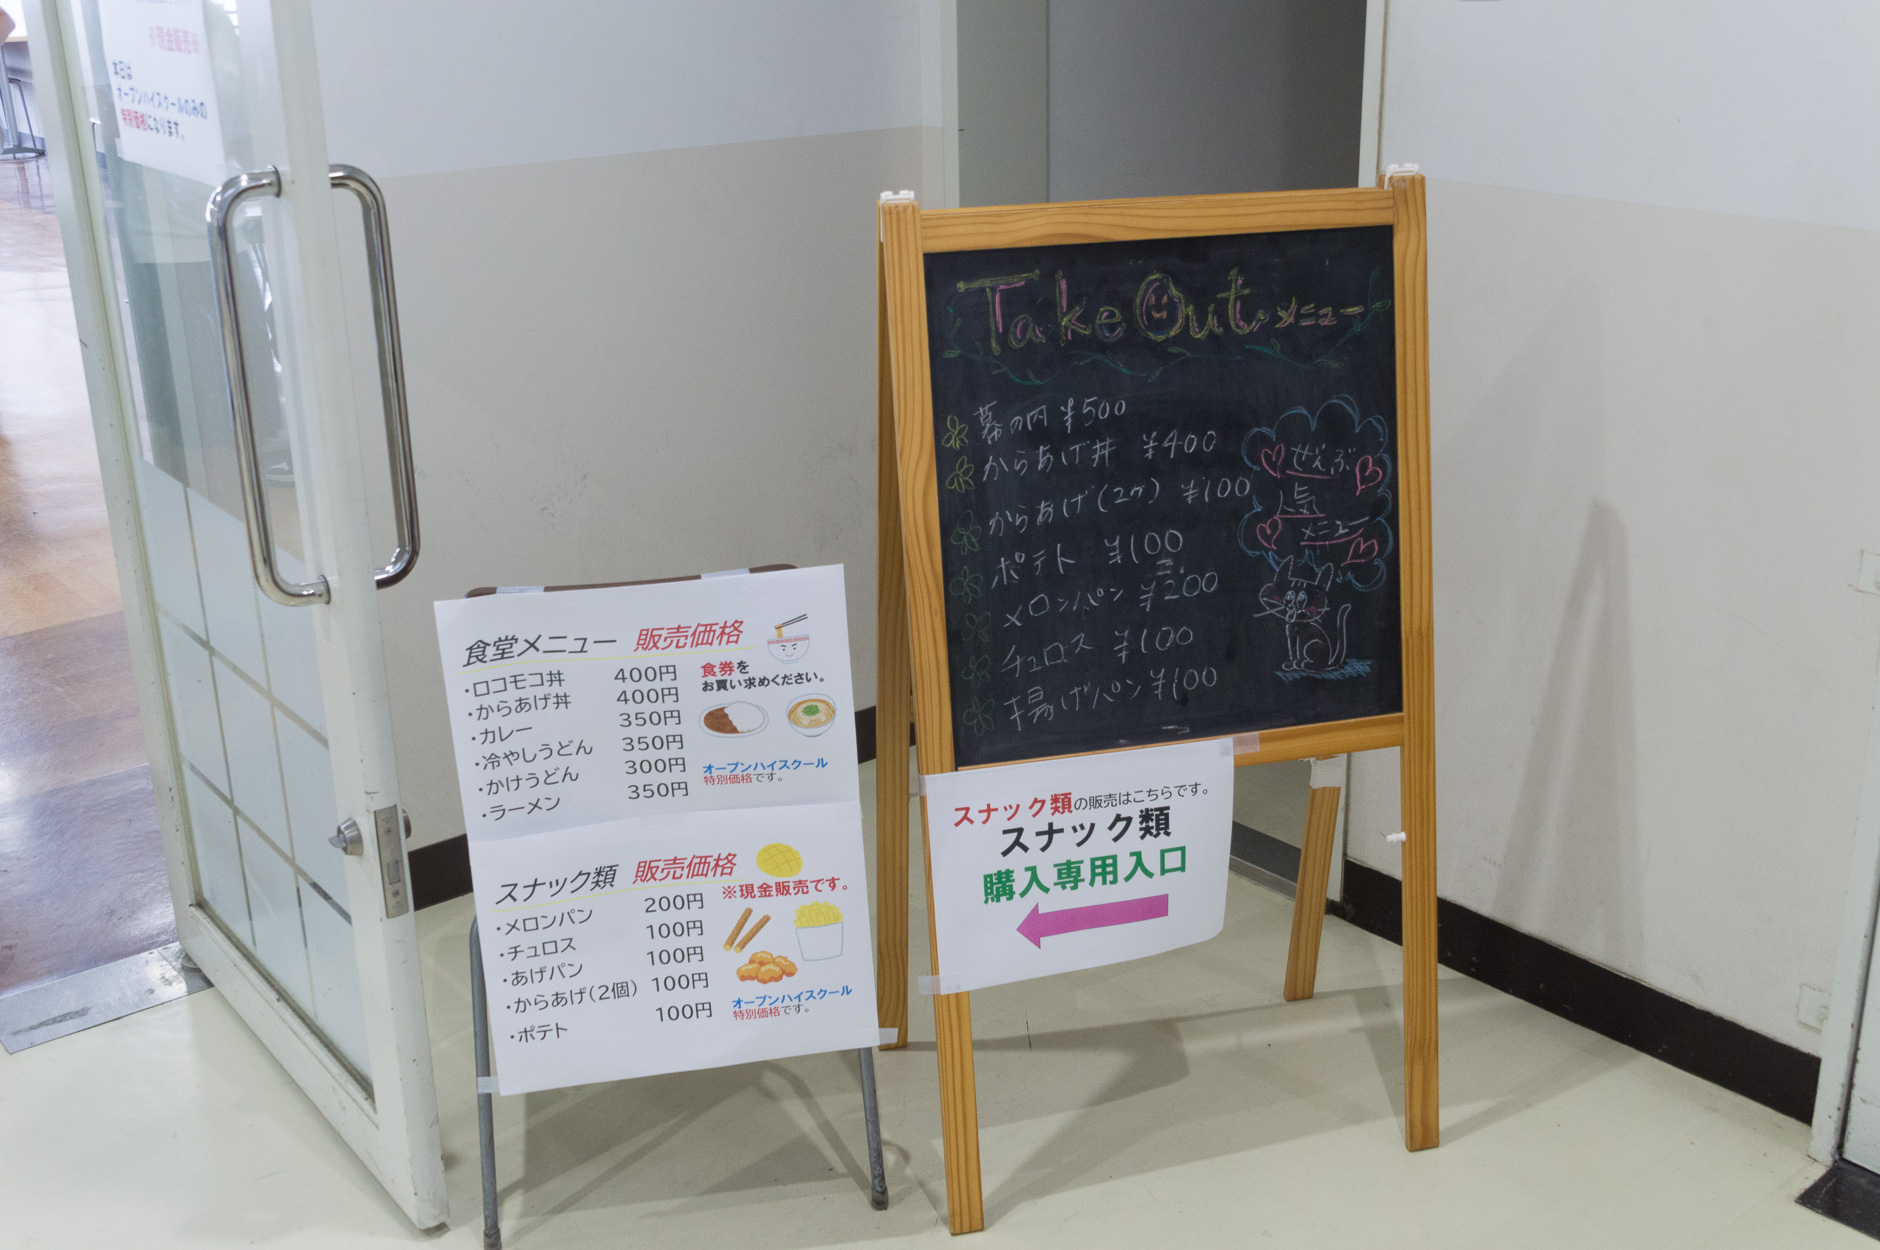 ※現金販売※
本日は
オープンハイスクールのみの
特別価格になります。
食堂メニュー 販売価格
・ロコモコ丼 400円
・からあげ丼 400円
・カレー 350円
・冷やしうどん 350円
・かけうどん 300円
・ラーメン 350円
食券を
お買い求めください。
オープンハイスクール
特別価格です。
スナック類 販売価格
※現金販売です。
・メロンパン 200円
・チュロス 100円
・あげパン 100円
・からあげ(2個) 100円
・ポテト 100円
オープンハイスクール
特別価格です。
Take Out メニュー
幕の内 ¥500
からあげ丼 ¥400
からあげ(2ケ) ¥100
ポテト ¥100
メロンパン ¥200
チュロス ¥100
揚げパン ¥100
ぜんぶ
人気
メニュー
スナック類の販売はこちらです。
スナック類
購入専用入口